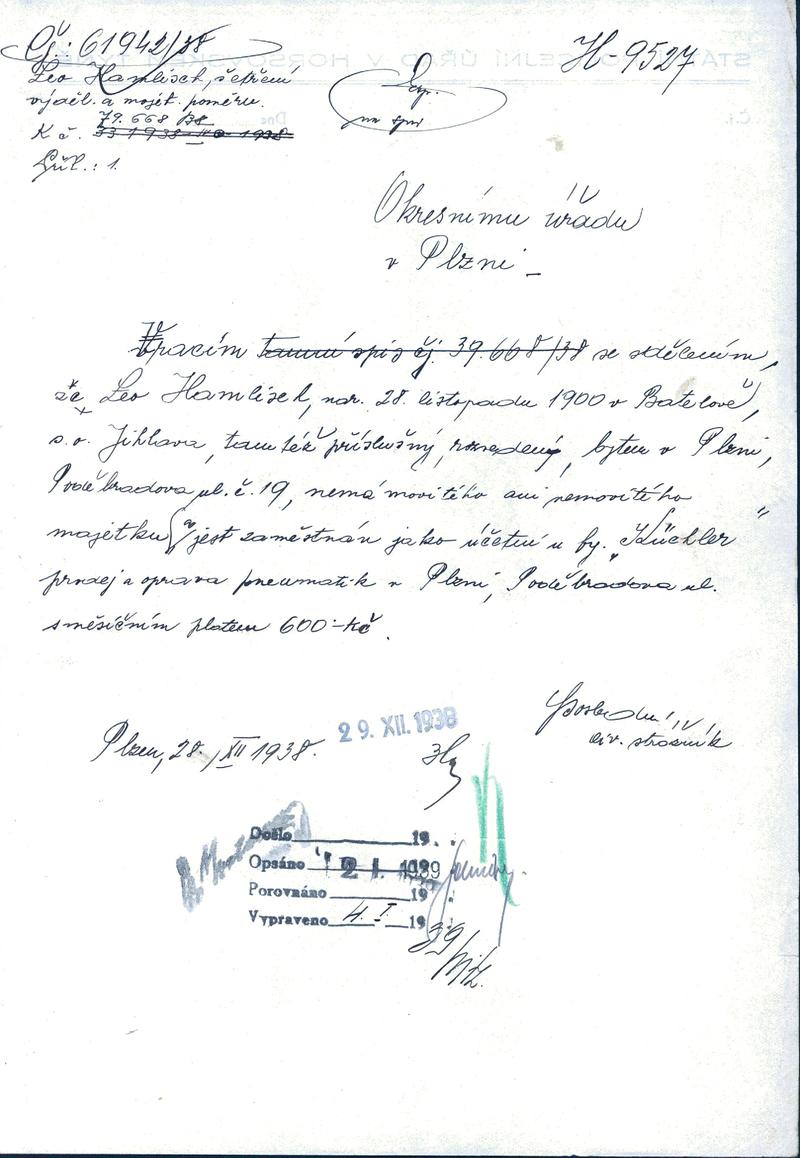 Čj: 61942/38
H-9527
Leo Hamlisch, šetření
výděl. a majet. poměru.
79.668 B8
K č. 33 1938
Příl.: 1.
Okresnímu úřadu
v Plzni
Vracím tamní spis čj. 39.668/38 se sdělením,
že Leo Hamlisch, nar. 28. listopadu 1900 v Batelově,
s.o. Jihlava, tamtéž příslušný, rozvedený, bytem v Plzni,
Poděbradova ul. č. 19, nemá movitého ani nemovitého
majetku a jest zaměstnán jako účetní u fy. „Küchler"
prodej a oprava pneumatik v Plzni, Poděbradova ul.
s měsíčním platem 600.- Kč.
Plzen, 28./XII 1938.
29. XII. 1938
civ. strážník
Došlo 19 .
Opsáno 2 I. 1939
Porovnáno 19 .
Vypraveno 4. I. 19 39